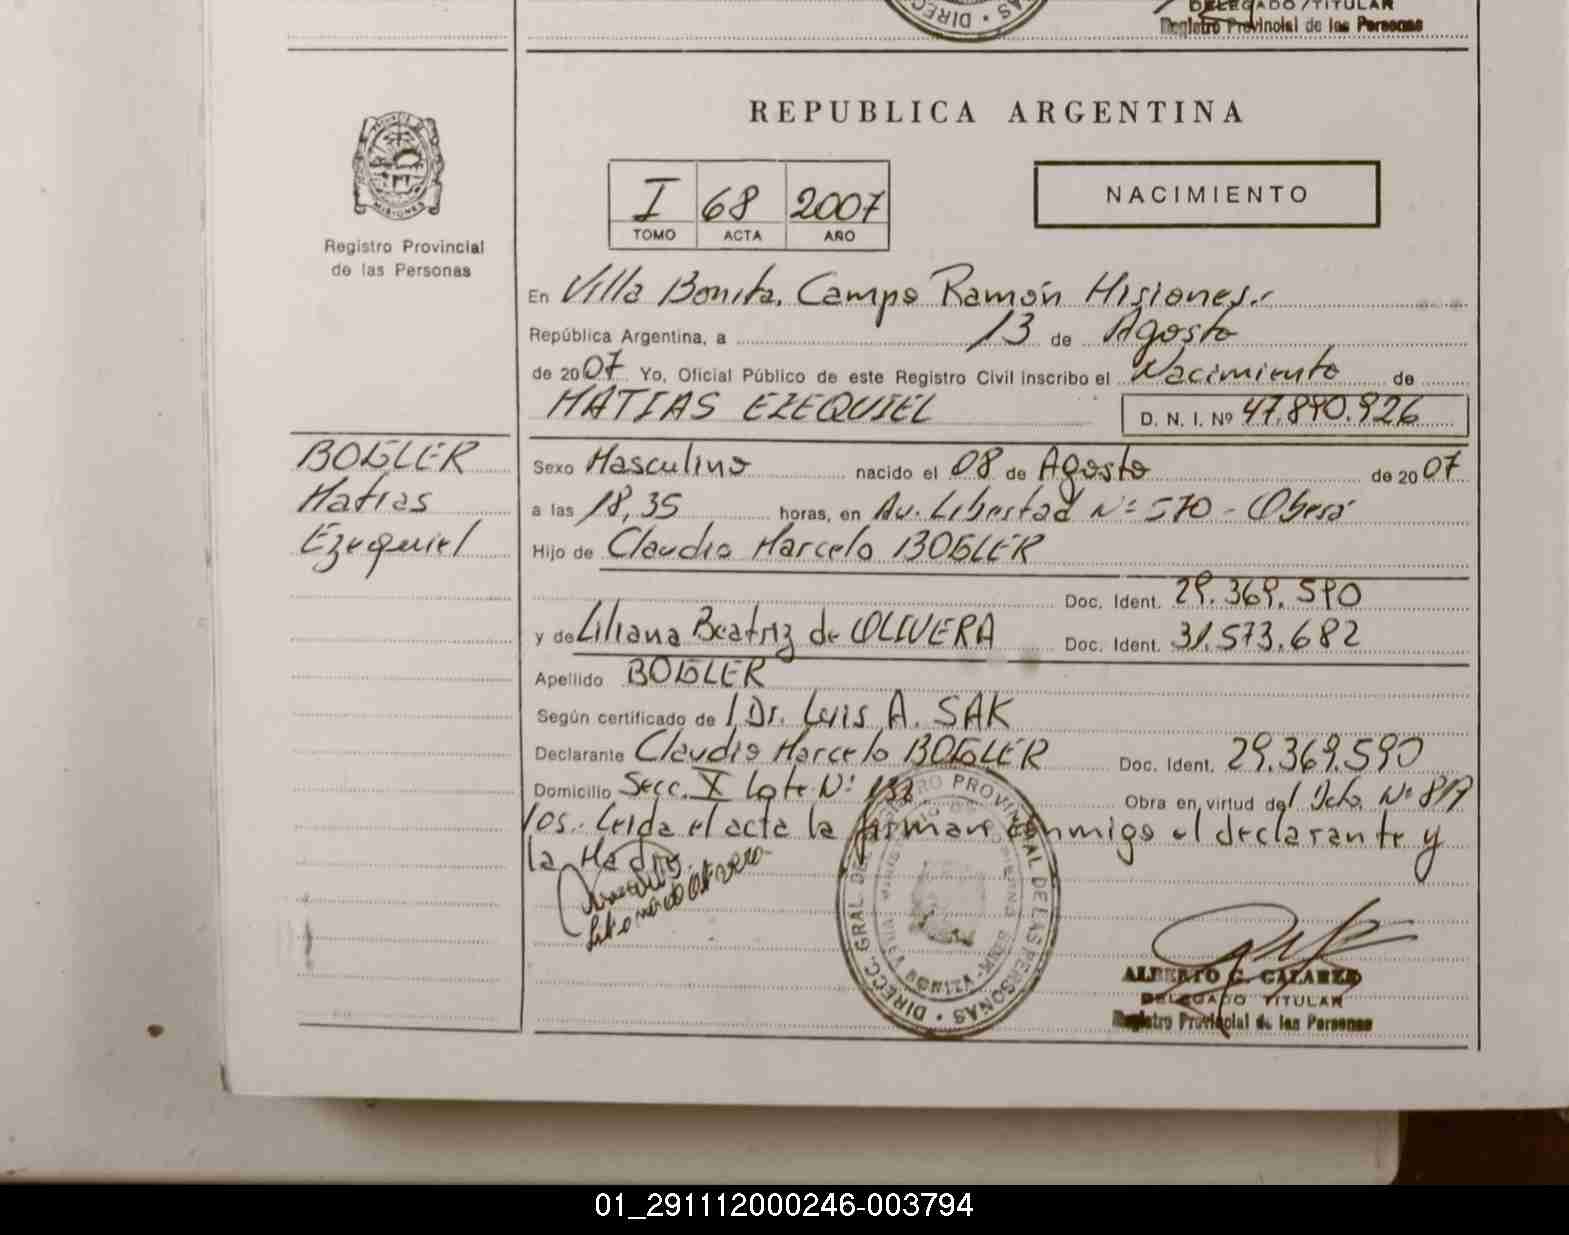 DELEGADO/TITULAR
Registro Provincial de las Personas
REPUBLICA ARGENTINA
I 68 2007
TOMO ACTA AÑO
NACIMIENTO
MISIONES
Registro Provincial
de las Personas
En Villa Bonita. Campo Ramón Misiones.
República Argentina, a 13 de Agosto
de 2007 Yo, Oficial Público de este Registro Civil inscribo el Nacimiento de
MATIAS EZEQUIEL
D. N. I. Nº 47.890.926
BOGLER
Matias
Ezequiel
Sexo Masculino nacido el 08 de Agosto de 2007
a las 18,35 horas, en Av. Libertad Nº 570 - Oberá
Hijo de Claudio Marcelo BOGLER
Doc. Ident. 29.369.590
y de Liliana Beatriz de OLIVERA Doc. Ident. 31.573.682
Apellido BOGLER
Según certificado de l Dr. Luis A. SAK
Declarante Claudio Marcelo BOGLER Doc. Ident. 29.369.590
Domicilio Secc. X Lote Nº 132 Obra en virtud de l Dcto. Nº 819
los.- Leida el acta la firman conmigo el declarante y
la Madre.
DIRECC. GRAL. DEL REGISTRO PROVINCIAL DE LAS PERSONAS
VILLA BONITA - MNES
ALBERTO C. CALAREZ
DELEGADO TITULAR
Registro Provincial de las Personas
01_291112000246-003794